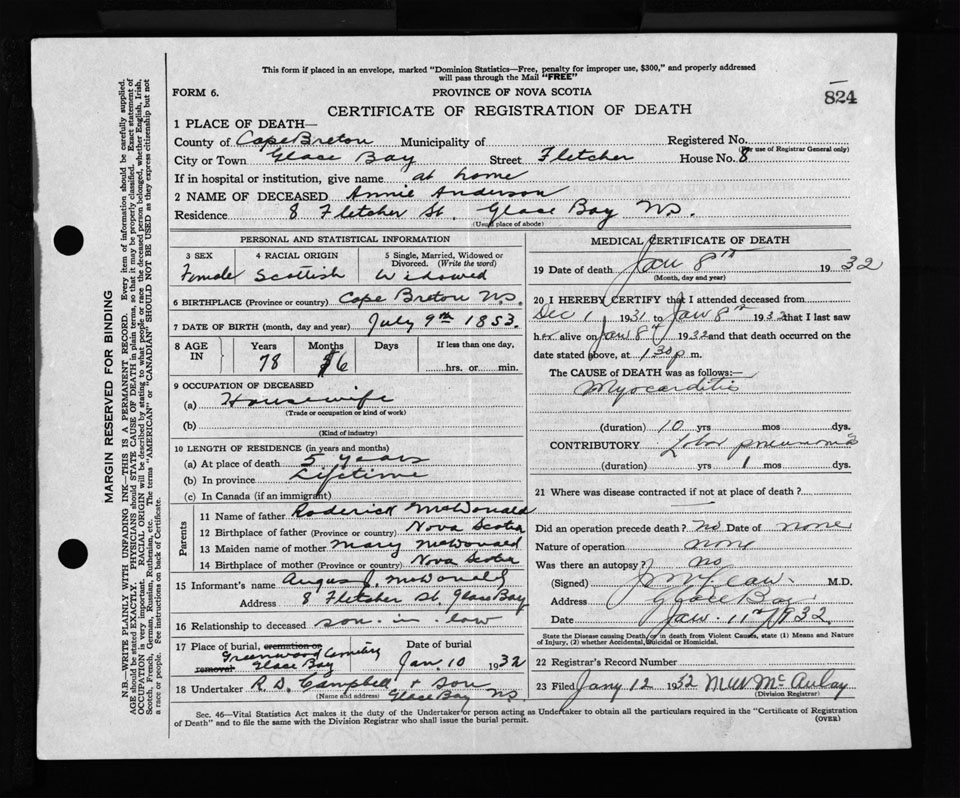 This form if placed in an envelope, marked "Dominion Statistics—Free, penalty for improper use, $300," and properly addressed
will pass through the Mail "FREE"
FORM 6.
PROVINCE OF NOVA SCOTIA
824
CERTIFICATE OF REGISTRATION OF DEATH
1 PLACE OF DEATH—
County of Cape Breton Municipality of Registered No.
(For use of Registrar General only)
City or Town Glace Bay Street Fletcher House No. 8
If in hospital or institution, give name at home
2 NAME OF DECEASED Annie Anderson
Residence 8 Fletcher St. Glace Bay N.S.
(Usual place of abode)
PERSONAL AND STATISTICAL INFORMATION
3 SEX 4 RACIAL ORIGIN 5 Single, Married, Widowed or
Divorced. (Write the word)
Female Scottish Widowed
6 BIRTHPLACE (Province or country) Cape Breton N.S.
7 DATE OF BIRTH (month, day and year) July 9th 1853.
8 AGE IN Years Months Days If less than one day,
78 6 hrs. or min.
9 OCCUPATION OF DECEASED
(a) Housewife
(Trade or occupation or kind of work)
(b)
(Kind of industry)
10 LENGTH OF RESIDENCE (in years and months)
(a) At place of death 5 years
(b) In province Lifetime
(c) In Canada (if an immigrant)
Parents
11 Name of father Roderick McDonald
12 Birthplace of father (Province or country) Nova Scotia
13 Maiden name of mother Mary McDonald
14 Birthplace of mother (Province or country) Nova Scotia
15 Informant's name Angus J. McDonald
Address 8 Fletcher St. Glace Bay
16 Relationship to deceased son-in-law
17 Place of burial cremation or Date of burial
Greenwood Cemetery
removal Glace Bay Jan. 10 1932
18 Undertaker R.D. Campbell + Son
(Name and address) Glace Bay NS
MEDICAL CERTIFICATE OF DEATH
19 Date of death Jan 8th 1932
(Month, day and year)
20 I HEREBY CERTIFY that I attended deceased from
Dec 1 1931 to Jan 8th 1932 that I last saw
her alive on Jan 8th 1932 and that death occurred on the
date stated above, at 1.30 p m.
The CAUSE of DEATH was as follows:—
Myocarditis
(duration) 10 yrs mos dys.
CONTRIBUTORY Lobar pneumonia
(duration) yrs 1 mos dys.
21 Where was disease contracted if not at place of death?
Did an operation precede death? no Date of none
Nature of operation none
Was there an autopsy? no
(Signed) M.D.
Address Glace Bay
Date Jan. 11th 1932.
State the Disease causing Death, or in death from Violent Causes, state (1) Means and Nature
of Injury, (2) whether Accidental, Suicidal or Homicidal.
22 Registrar's Record Number
23 Filed Jany 12 1932 McAulay
(Division Registrar)
Sec. 46—Vital Statistics Act makes it the duty of the Undertaker or person acting as Undertaker to obtain all the particulars required in the "Certificate of Registration
of Death" and to file the same with the Division Registrar who shall issue the burial permit.
(OVER)
MARGIN RESERVED FOR BINDING
N.B.—WRITE PLAINLY WITH UNFADING INK—THIS IS A PERMANENT RECORD. Every item of information should be carefully supplied.
AGE should be stated EXACTLY. PHYSICIANS should STATE CAUSE OF DEATH in plain terms, so that it may be properly classified. Exact statement of
OCCUPATION is very important. RACIAL ORIGIN will be described by stating to what people or race the deceased person belonged, whether English, Irish,
Scotch, French, German, Russian, Ruthenian, etc. The terms "AMERICAN" or "CANADIAN" SHOULD NOT BE USED as they express citizenship but not
a race or people. See instructions on back of Certificate.